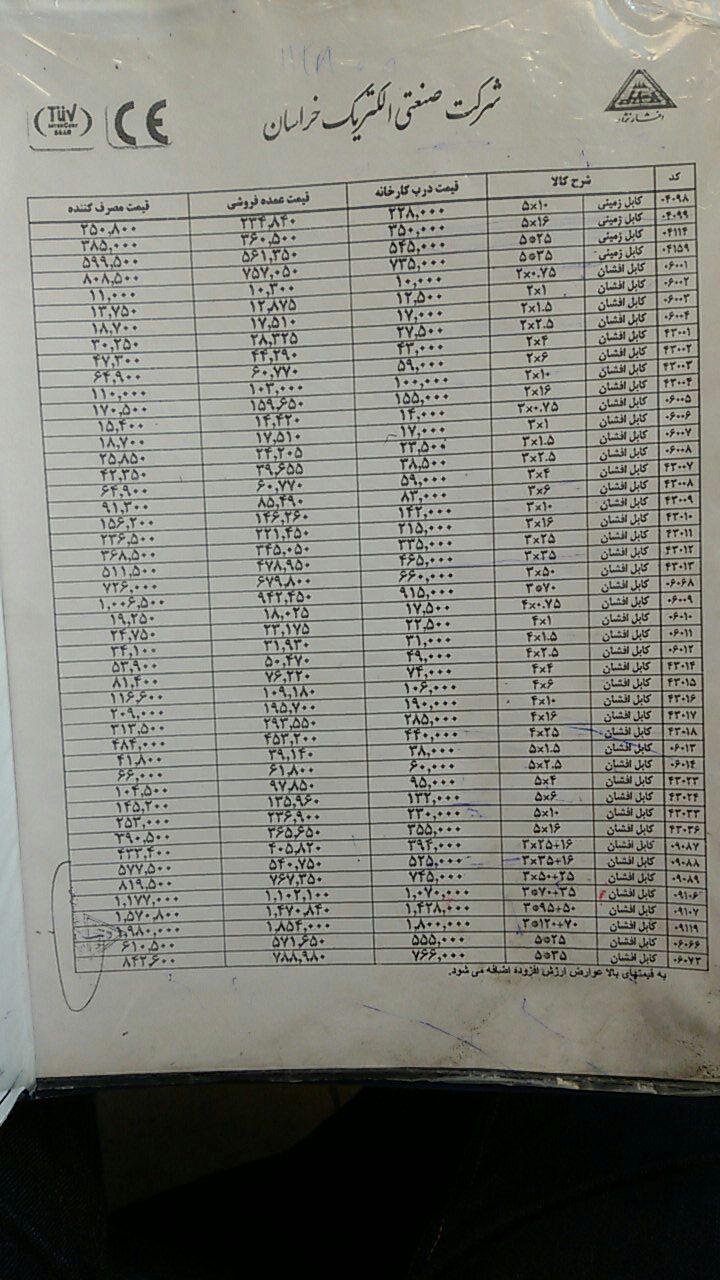 افشارنژاد
شرکت صنعتی الکتریک خراسان
CE
TÜV
INTERCERT
SAAR
کد شرح کالا قیمت درب کارخانه قیمت عمده فروشی قیمت مصرف کننده
۰۴۰۹۸ کابل زمینی ۵×۱۰ ۲۲۸,۰۰۰ ۲۳۴,۸۴۰ ۲۵۰,۸۰۰
۰۴۰۹۹ کابل زمینی ۵×۱۶ ۳۵۰,۰۰۰ ۳۶۰,۵۰۰ ۳۸۵,۰۰۰
۰۴۱۱۴ کابل زمینی ۵*۲۵ ۵۴۵,۰۰۰ ۵۶۱,۳۵۰ ۵۹۹,۵۰۰
۰۴۱۵۹ کابل زمینی ۵*۳۵ ۷۳۵,۰۰۰ ۷۵۷,۰۵۰ ۸۰۸,۵۰۰
۰۶۰۰۱ کابل افشان ۲×۰.۷۵ ۱۰,۰۰۰ ۱۰,۳۰۰ ۱۱,۰۰۰
۰۶۰۰۲ کابل افشان ۲×۱ ۱۲,۵۰۰ ۱۲,۸۷۵ ۱۳,۷۵۰
۰۶۰۰۳ کابل افشان ۲×۱.۵ ۱۷,۰۰۰ ۱۷,۵۱۰ ۱۸,۷۰۰
۰۶۰۰۴ کابل افشان ۲×۲.۵ ۲۷,۵۰۰ ۲۸,۳۲۵ ۳۰,۲۵۰
۴۳۰۰۱ کابل افشان ۲×۴ ۴۳,۰۰۰ ۴۴,۲۹۰ ۴۷,۳۰۰
۴۳۰۰۲ کابل افشان ۲×۶ ۵۹,۰۰۰ ۶۰,۷۷۰ ۶۴,۹۰۰
۴۳۰۰۳ کابل افشان ۲×۱۰ ۱۰۰,۰۰۰ ۱۰۳,۰۰۰ ۱۱۰,۰۰۰
۴۳۰۰۴ کابل افشان ۲×۱۶ ۱۵۵,۰۰۰ ۱۵۹,۶۵۰ ۱۷۰,۵۰۰
۰۶۰۰۵ کابل افشان ۳×۰.۷۵ ۱۴,۰۰۰ ۱۴,۴۲۰ ۱۵,۴۰۰
۰۶۰۰۶ کابل افشان ۳×۱ ۱۷,۰۰۰ ۱۷,۵۱۰ ۱۸,۷۰۰
۰۶۰۰۷ کابل افشان ۳×۱.۵ ۲۳,۵۰۰ ۲۴,۲۰۵ ۲۵,۸۵۰
۰۶۰۰۸ کابل افشان ۳×۲.۵ ۳۸,۵۰۰ ۳۹,۶۵۵ ۴۲,۳۵۰
۴۳۰۰۷ کابل افشان ۳×۴ ۵۹,۰۰۰ ۶۰,۷۷۰ ۶۴,۹۰۰
۴۳۰۰۸ کابل افشان ۳×۶ ۸۳,۰۰۰ ۸۵,۴۹۰ ۹۱,۳۰۰
۴۳۰۰۹ کابل افشان ۳×۱۰ ۱۴۲,۰۰۰ ۱۴۶,۲۶۰ ۱۵۶,۲۰۰
۴۳۰۱۰ کابل افشان ۳×۱۶ ۲۱۵,۰۰۰ ۲۲۱,۴۵۰ ۲۳۶,۵۰۰
۴۳۰۱۱ کابل افشان ۳×۲۵ ۳۳۵,۰۰۰ ۳۴۵,۰۵۰ ۳۶۸,۵۰۰
۴۳۰۱۲ کابل افشان ۳×۳۵ ۴۶۵,۰۰۰ ۴۷۸,۹۵۰ ۵۱۱,۵۰۰
۴۳۰۱۳ کابل افشان ۳×۵۰ ۶۶۰,۰۰۰ ۶۷۹,۸۰۰ ۷۲۶,۰۰۰
۰۶۰۶۸ کابل افشان ۳*۷۰ ۹۱۵,۰۰۰ ۹۴۲,۴۵۰ ۱,۰۰۶,۵۰۰
۰۶۰۰۹ کابل افشان ۴×۰.۷۵ ۱۷,۵۰۰ ۱۸,۰۲۵ ۱۹,۲۵۰
۰۶۰۱۰ کابل افشان ۴×۱ ۲۲,۵۰۰ ۲۳,۱۷۵ ۲۴,۷۵۰
۰۶۰۱۱ کابل افشان ۴×۱.۵ ۳۱,۰۰۰ ۳۱,۹۳۰ ۳۴,۱۰۰
۰۶۰۱۲ کابل افشان ۴×۲.۵ ۴۹,۰۰۰ ۵۰,۴۷۰ ۵۳,۹۰۰
۴۳۰۱۴ کابل افشان ۴×۴ ۷۴,۰۰۰ ۷۶,۲۲۰ ۸۱,۴۰۰
۴۳۰۱۵ کابل افشان ۴×۶ ۱۰۶,۰۰۰ ۱۰۹,۱۸۰ ۱۱۶,۶۰۰
۴۳۰۱۶ کابل افشان ۴×۱۰ ۱۹۰,۰۰۰ ۱۹۵,۷۰۰ ۲۰۹,۰۰۰
۴۳۰۱۷ کابل افشان ۴×۱۶ ۲۸۵,۰۰۰ ۲۹۳,۵۵۰ ۳۱۳,۵۰۰
۴۳۰۱۸ کابل افشان ۴×۲۵ ۴۴۰,۰۰۰ ۴۵۳,۲۰۰ ۴۸۴,۰۰۰
۰۶۰۱۳ کابل افشان ۵×۱.۵ ۳۸,۰۰۰ ۳۹,۱۴۰ ۴۱,۸۰۰
۰۶۰۱۴ کابل افشان ۵×۲.۵ ۶۰,۰۰۰ ۶۱,۸۰۰ ۶۶,۰۰۰
۴۳۰۲۳ کابل افشان ۵×۴ ۹۵,۰۰۰ ۹۷,۸۵۰ ۱۰۴,۵۰۰
۴۳۰۲۴ کابل افشان ۵×۶ ۱۳۲,۰۰۰ ۱۳۵,۹۶۰ ۱۴۵,۲۰۰
۴۳۰۳۳ کابل افشان ۵×۱۰ ۲۳۰,۰۰۰ ۲۳۶,۹۰۰ ۲۵۳,۰۰۰
۴۳۰۳۶ کابل افشان ۵×۱۶ ۳۵۵,۰۰۰ ۳۶۵,۶۵۰ ۳۹۰,۵۰۰
۰۹۰۸۷ کابل افشان ۳×۲۵+۱۶ ۳۹۴,۰۰۰ ۴۰۵,۸۲۰ ۴۳۳,۴۰۰
۰۹۰۸۸ کابل افشان ۳×۳۵+۱۶ ۵۲۵,۰۰۰ ۵۴۰,۷۵۰ ۵۷۷,۵۰۰
۰۹۰۸۹ کابل افشان ۳×۵۰+۲۵ ۷۴۵,۰۰۰ ۷۶۷,۳۵۰ ۸۱۹,۵۰۰
۰۹۱۰۶ کابل افشان ۳*۷۰+۳۵ ۱,۰۷۰,۰۰۰ ۱,۱۰۲,۱۰۰ ۱,۱۷۷,۰۰۰
۰۹۱۰۷ کابل افشان ۳*۹۵+۵۰ ۱,۴۲۸,۰۰۰ ۱,۴۷۰,۸۴۰ ۱,۵۷۰,۸۰۰
۰۹۱۱۹ کابل افشان ۳*۱۲۰+۷۰ ۱,۸۰۰,۰۰۰ ۱,۸۵۴,۰۰۰ ۱,۹۸۰,۰۰۰
۰۶۰۶۶ کابل افشان ۵*۲۵ ۵۵۵,۰۰۰ ۵۷۱,۶۵۰ ۶۱۰,۵۰۰
۰۶۰۷۳ کابل افشان ۵*۳۵ ۷۶۶,۰۰۰ ۷۸۸,۹۸۰ ۸۴۲,۶۰۰
به قیمتهای بالا عوارض ارزش افزوده اضافه می شود.